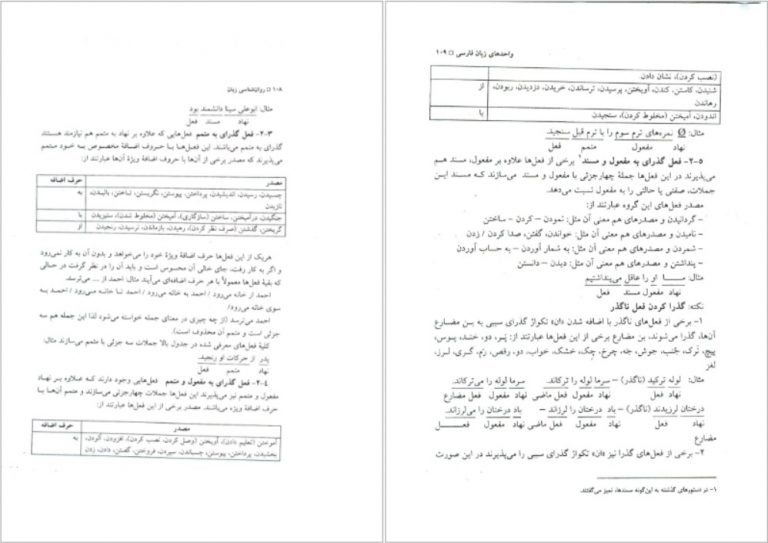 ۱۰۸ □ روان‌شناسی زبان
مثال: ابوعلی سینا دانشمند بود
نهاد مسند فعل
۳-۲- فعل گذرای به متمم فعل‌هایی که علاوه بر نهاد به متمم هم نیازمند هستند
گذرای به متمم می‌باشند. این فعل‌ها با حروف اضافهٔ مخصوص به خود متمم
می‌پذیرند که مصدر برخی از آن‌ها با حروف اضافهٔ ویژهٔ آن‌ها عبارتند از:
مصدر حرف اضافه
چسبیدن، رسیدن، اندیشیدن، پرداختن، پیوستن، نگریستن، تاختن، بالیدن، به
نازیدن
جنگیدن، درآمیختن، ساختن (سازگاری)، آمیختن (مخلوط شدن)، ستیزیدن با
گریختن، گذشتن (صرف نظر کردن)، رهیدن، بازماندن، ترسیدن، رنجیدن از
هریک از این فعل‌ها حرف اضافهٔ ویژهٔ خود را می‌خواهند و بدون آن به کار نمی‌رود
و اگر به کار رفت، جای خالی آن محسوس است و باید آن را در نظر گرفت در حالی
که بقیهٔ فعل‌ها معمولاً با هر حرف اضافه‌ای می‌آیند مثال: احمد از ... می‌ترسد.
احمد از خانه می‌رود / احمد به خانه می‌رود / احمد تا خانه می‌رود / احمد به
سوی خانه می‌رود/
احمد می‌ترسد (از چه چیزی در معنای جمله خواسته می‌شود لذا این جمله هم سه
جزئی است و متمم آن محذوف است).
کلیهٔ فعل‌های معرفی شده در جدول بالا جملات سه جزئی با متمم می‌سازند مثال:
پدر از حرکات او رنجید.
نهاد متمم فعل
۴-۲- فعل گذرای به مفعول و متمم فعل‌هایی وجود دارند که علاوه بر نهاد
مفعول و متمم نیز می‌پذیرند این فعل‌ها جملات چهارجزئی می‌سازند و متمم آن‌ها با
حرف اضافهٔ ویژه می‌باشند. مصدر برخی از این فعل‌ها عبارتند از:
مصدر حرف اضافه
آموختن (تعلیم دادن)، آویختن (وصل کردن، نصب کردن)، افزودن، آلودن، به
بخشیدن، پرداختن، پیوستن، چسباندن، سپردن، فروختن، گفتن، دادن، زدن
واحدهای زبان فارسی □ ۱۰۹
(نصب کردن)، نشان دادن.
شنیدن، کاستن، کندن، آویختن، پرسیدن، ترساندن، خریدن، دزدیدن، ربودن، از
رهاندن
اندودن، آمیختن (مخلوط کردن)، سنجیدن با
مثال: Ø نمره‌های ترم سوم را با ترم قبل سنجید.
نهاد مفعول متمم فعل
۵-۲- فعل گذرای به مفعول و مسند۱ برخی از فعل‌ها علاوه بر مفعول، مسند هم
می‌پذیرند در این فعل‌ها جملهٔ چهارجزئی با مفعول و مسند می‌سازند که مسند این
جملات، صفتی یا حالتی را به مفعول نسبت می‌دهد.
مصدر فعل‌های این گروه عبارتند از:
- گردانیدن و مصدرهای هم معنی آن مثل: نمودن – کردن – ساختن
- نامیدن و مصدرهای هم معنی آن مثل: خواندن، گفتن، صدا کردن / زدن
- شمردن و مصدرهای هم معنی آن مثل: به شمار آوردن – به حساب آوردن
- پنداشتن و مصدرهای هم معنی آن مثل: دیدن – دانستن
مثال: ما او را عاقل می‌پنداشتیم
نهاد مفعول مسند فعل
نکته: گذرا کردن فعل ناگذر
۱- برخی از فعل‌های ناگذر با اضافه شدن «ان» تکواژ گذرای سببی به بن مضارع
آن‌ها، گذرا می‌شوند. بن مضارع برخی از این فعل‌ها عبارتند از: پَر، دو، خند، پوس،
پیچ، تَرَک، جُنب، جوش، جَه، چرخ، چک، خشک، خواب، دو، رقص، رَم، گری، لرز،
لغز
مثال: لوله ترکید (ناگذر) – سرما لوله را ترکاند. سرما لوله را می‌ترکاند.
نهاد فعل نهاد مفعول فعل ماضی نهاد مفعول فعل مضارع
درختان لرزیدند (ناگذر) – باد درختان را لرزاند – باد درختان را می‌لرزاند.
نهاد فعل نهاد مفعول فعل ماضی نهاد مفعول فعل
مضارع
۲- برخی از فعل‌های گذرا نیز «ان» تکواژ گذرای سببی را می‌پذیرند در این صورت
۱- در دستورهای گذشته به این‌گونه مسندها، تمیز می‌گفتند.